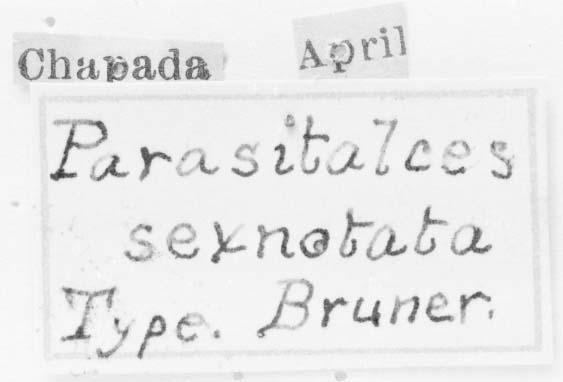 Chapada April
Parasitalces
sexnotata
Type. Bruner.